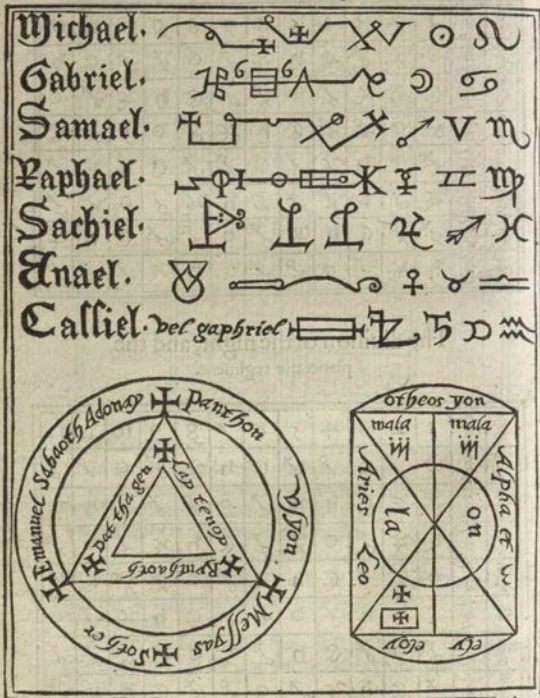 Michael.
Gabriel.
Samael.
Raphael.
Sachiel.
Anael.
Cassiel. vel gaphriel
Emanuel Sabaoth Adonay ✠ Panthon
Vsyon ✠ Messyas ✠ Sother ✠
pat tha gen
Lap tenop
otheos yon
mala mala
Aries Leo
la on
Alpha et ω
eloy ely